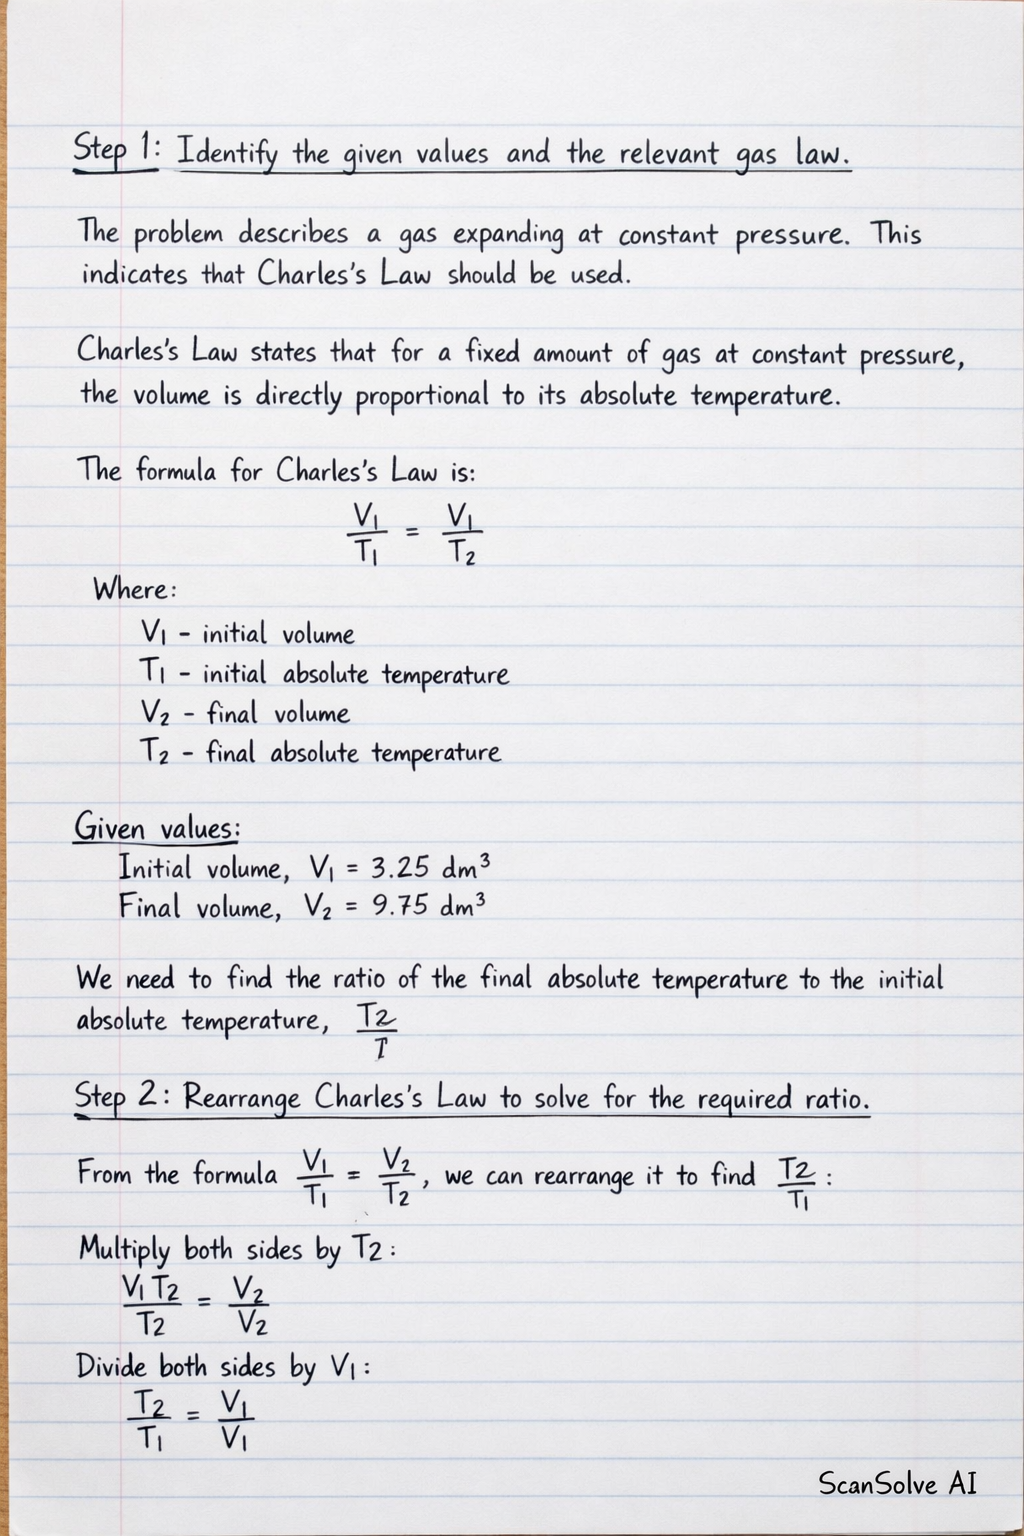 Step 1: Identify the given values and the relevant gas law.
The problem describes a gas expanding at constant pressure. This
indicates that Charles's Law should be used.
Charles's Law states that for a fixed amount of gas at constant pressure,
the volume is directly proportional to its absolute temperature.
The formula for Charles's Law is:
V₁/T₁ = V₁/T₂
Where:
V₁ - initial volume
T₁ - initial absolute temperature
V₂ - final volume
T₂ - final absolute temperature
Given values:
Initial volume, V₁ = 3.25 dm³
Final volume, V₂ = 9.75 dm³
We need to find the ratio of the final absolute temperature to the initial
absolute temperature, T₂/T
Step 2: Rearrange Charles's Law to solve for the required ratio.
From the formula V₁/T₁ = V₂/T₂, we can rearrange it to find T₂/T₁:
Multiply both sides by T₂:
V₁ T₂/T₂ = V₂/V₂
Divide both sides by V₁:
T₂/T₁ = V₁/V₁
ScanSolve AI